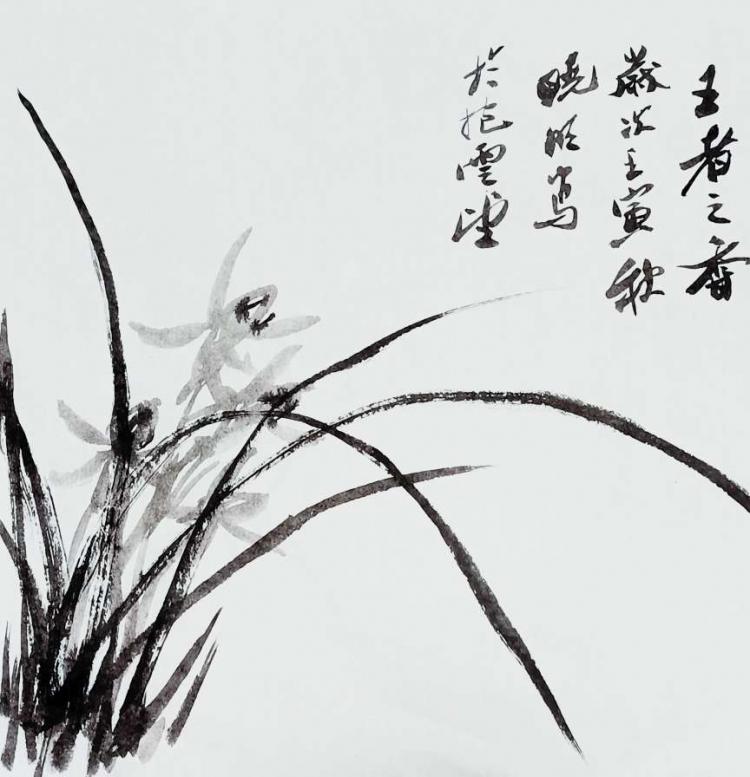 王者之香
歲次壬寅秋
曉明寫
於抱雲堂